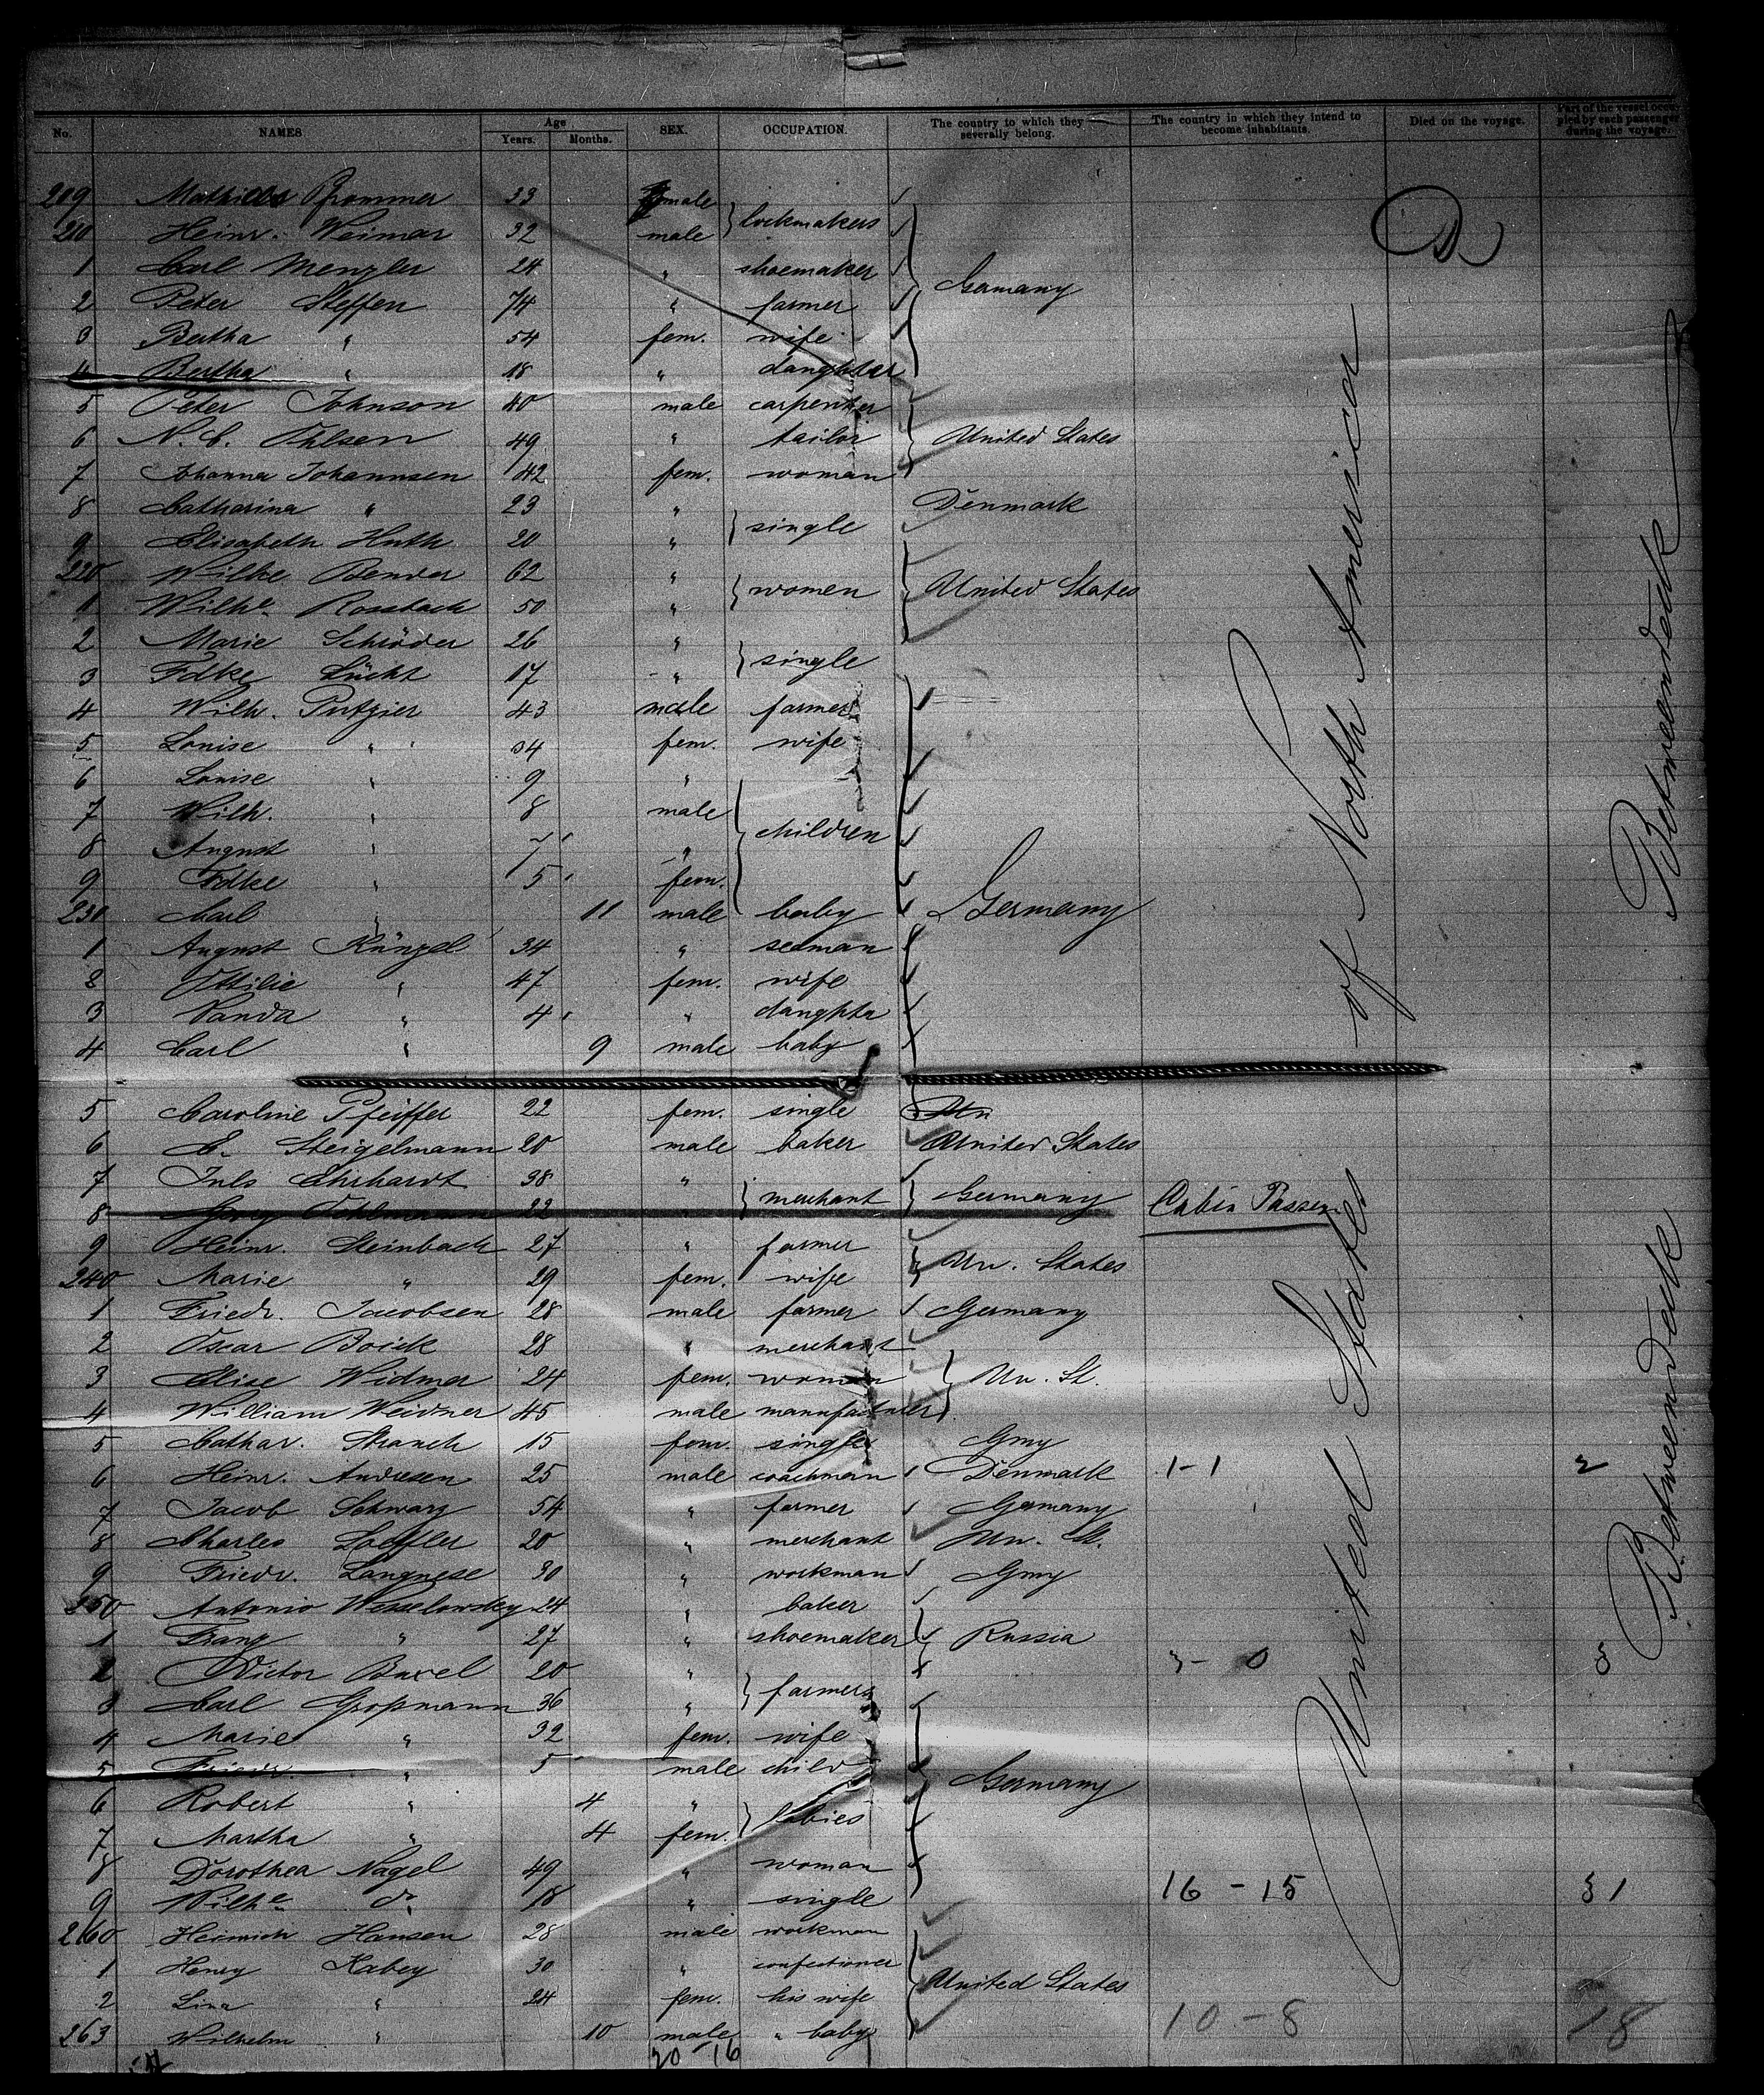 No. NAMES Age Years. Months. SEX. OCCUPATION. The country to which they severally belong. The country in which they intend to become inhabitants. Died on the voyage. Part of the vessel occupied by each passenger during the voyage.
209 Mathias Pfrommer 33 male
210 Heinr. Weimar 32 male } lockmakers
1 Carl Menzler 24 " shoemaker
2 Peter Steffen 74 " farmer Germany
3 Bertha " 54 fem. wife
4 Bertha " 18 " daughter
5 Peter Johnson 40 male carpenter
6 N. C. Ohlsen 49 " tailor United States
7 Johanna Johannsen 42 fem. woman
8 Catharina " 23 " Denmark
9 Elisabeth Huth 20 " } single
220 Wilke Bender 62 "
1 Wilhe Rossbach 50 " } women United States
2 Marie Schröder 26 "
3 Fdke Lücht 17 " } single
4 Wilh. Putzier 43 male farmer
5 Louise " 34 fem. wife
6 Louise " 9 "
7 Wilh. " 8 male
8 August " 7 " children
9 Fdke " 5 fem.
230 Carl " 11 male baby Germany
1 August Künzel 34 " seaman
2 Ottilie " 47 fem. wife
3 Vanda " 4 " daughta
4 Carl " 9 male baby
5 Caroline Pfeiffer 22 fem. single Un
6 C. Steigelmann 20 male baker United States
7 Juls Ehrhardt 38 "
8 22 " } merchant Germany Cabin Passen.
9 Heinr. Steinbach 27 " farmer
240 Marie " 29 fem. wife Un. States
1 Friedr. Jacobsen 28 male farmer Germany
2 Oscar Boick 28 " merchant
3 Elise Widmer 24 fem. woman Un. St.
4 William Weidner 45 male manufacturer
5 Cathar. Strauch 15 fem. single Gmy
6 Heinr. Andresen 25 male coachman Denmark 1-1 2
7 Jacob Schwarz 54 " farmer Germany
8 Charles Loeffler 20 " merchant Un. St.
9 Friedr. Langnese 30 " workman Gmy
250 Antonio Wesselowsky 24 " baker
1 Franz " 27 " shoemaker Russia
2 Victor Buxel 20 " 3- 0 3
3 Carl Großmann 36 " } farmers
4 Marie " 32 fem. wife
5 Friedr. " 5 male child
6 Robert " 4 " Germany
7 Martha " 4 fem. } babies
8 Dorothea Nagel 49 " woman
9 Wilhe do 18 " single 16 - 15 31
260 Heinrich Hansen 28 male workman
1 Henry Kabey 30 " confectioner
2 Lina " 24 fem. his wife United States
263 Wilhelm " 10 male " baby 10 - 8 18
20 16
United States of North America
Betweendeck
Betweendeck